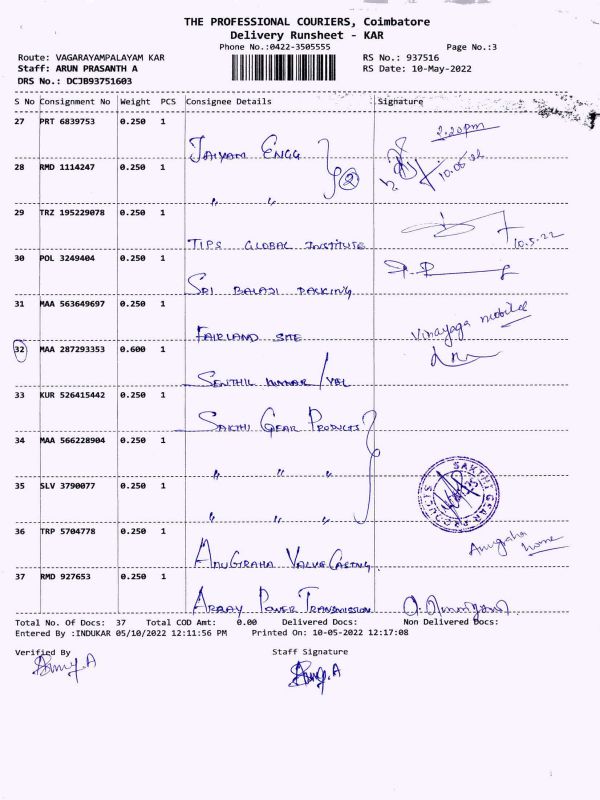 THE PROFESSIONAL COURIERS, Coimbatore
Delivery Runsheet - KAR
Phone No.:0422-3505555 Page No.:3
Route: VAGARAYAMPALAYAM KAR RS No.: 937516
Staff: ARUN PRASANTH A RS Date: 10-May-2022
DRS No.: DCJB93751603
S No Consignment No Weight PCS Consignee Details Signature
27 PRT 6839753 0.250 1
JAIYAM ENGG 2.20pm
28 RMD 1114247 0.250 1 2 10.05.22
" "
29 TRZ 195229078 0.250 1
TIPS GLOBAL INSTITUTE 10.5.22
30 POL 3249404 0.250 1
SRI BALAJI PACKING
31 MAA 563649697 0.250 1
FAIRLAND SITE Vinayaga mobiles
32 MAA 287293353 0.600 1
SENTHIL KUMAR / VEL
33 KUR 526415442 0.250 1
SAKTHI GEAR PRODUCTS
34 MAA 566228904 0.250 1
" " "
SAKTHI GEAR PRODUCTS
35 SLV 3790077 0.250 1
" " "
36 TRP 5704778 0.250 1
ANUGRAHA VALVE CASTNG Anugraha home
37 RMD 927653 0.250 1
ARRAY POWER TRANSMISSION
Total No. Of Docs: 37 Total COD Amt: 0.00 Delivered Docs: Non Delivered Docs:
Entered By :INDUKAR 05/10/2022 12:11:56 PM Printed On: 10-05-2022 12:17:08
Verified By Staff Signature